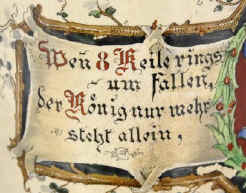 Weñ 8 Keile rings
um fallen,
der König nur mehr
steht allein,